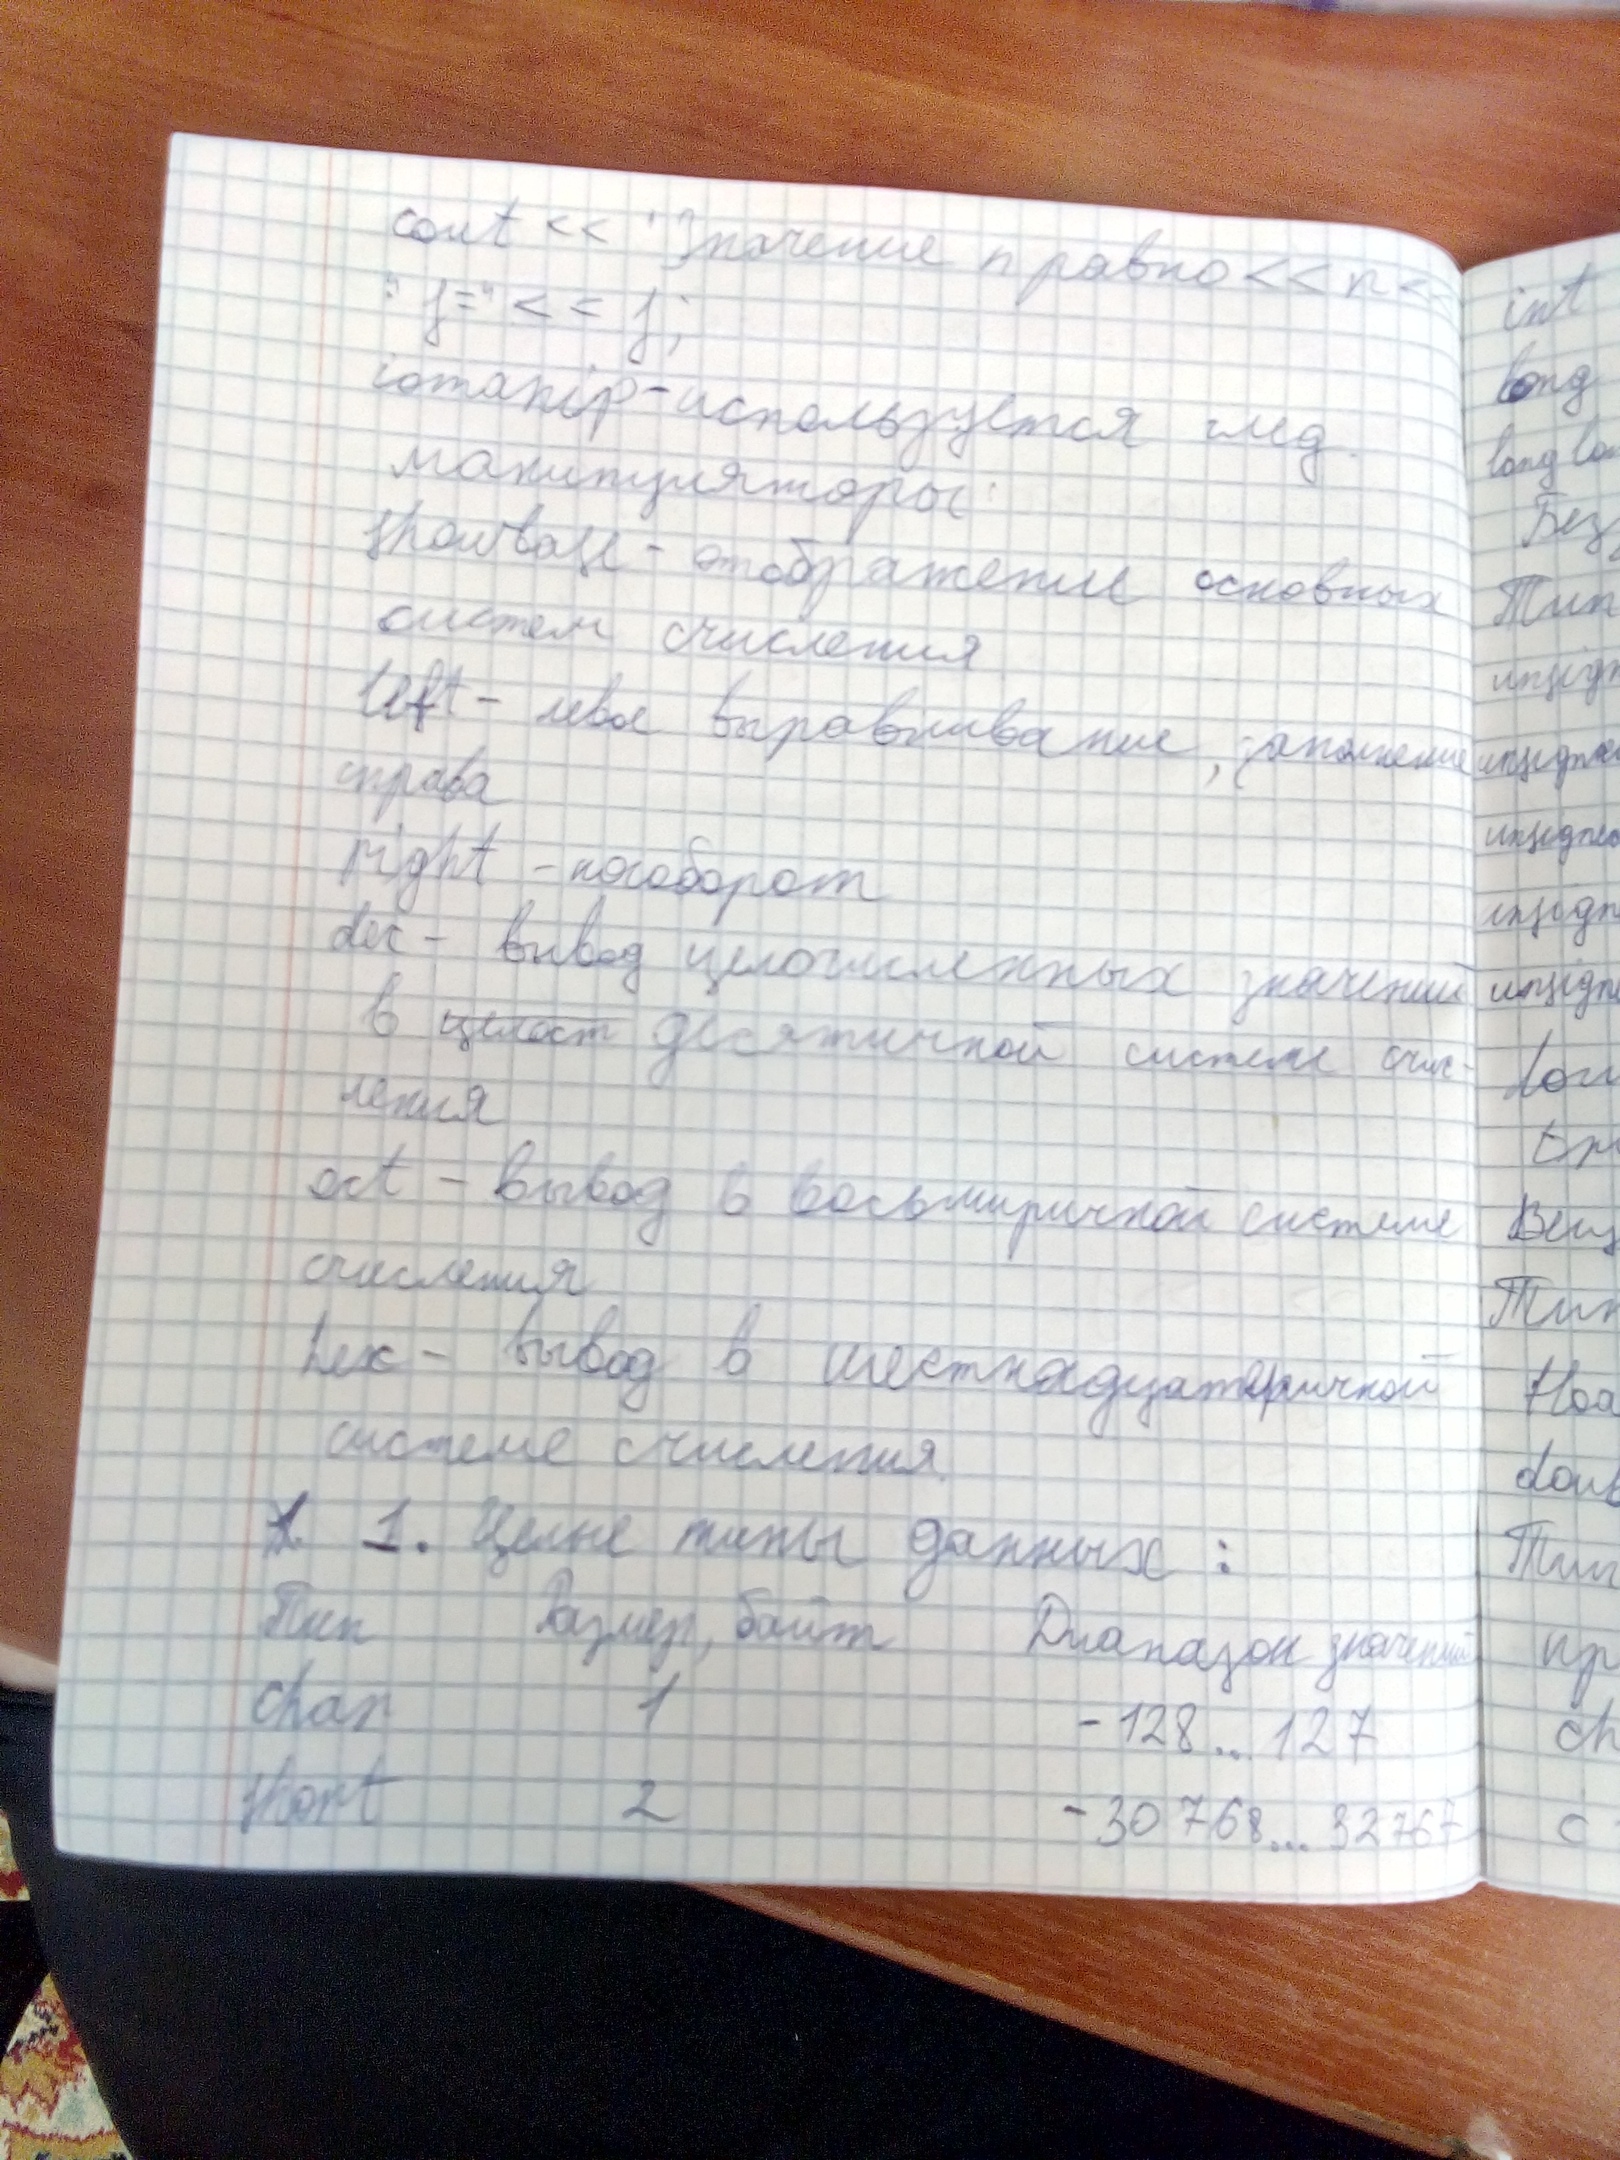 cout << "Значение n равно << n <<
"j=" << j;
iomanip - используется след.
манипуляторы:
showbase - отображение основных
систем счисления
left - левое выравнивание, заполнение
справа
right - наоборот
dec - вывод целочисленных значений
в целост десятичной системе счис-
ления
oct - вывод в восьмиричной системе
счисления
hex - вывод в шестнадцатеричной
системе счисления.
1. Целые типы данных:
Тип Размер, байт Диапазон значений
char 1 -128... 127
short 2 -30768... 32767
int
long
long lon
Без
Тип
unsign
unsigned
unsigned
unsign
unsigne
Вещ
Тип
floa
doub
Тип
пр
ch
c